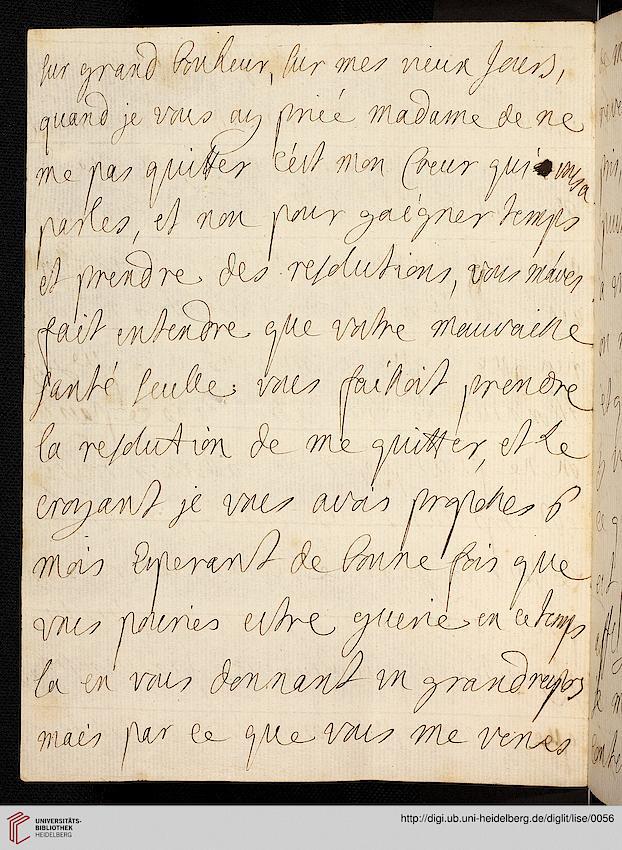 sur grand bonheur, sur mes vieux jours,
quand je vous ay priée madame de ne
me pas quitter c'est mon Coeur qui vous a
parles, et non pour gaigner temps
et prendre des resolutions, vous m'aves
fait entendre que vostre mauvaise
santé seulle vous faisoit prendre
la resolution de me quitter, et le
croyant je vous avois proposes 6
mois Esperant de bonne fois que
vous pouries estre guerie en ce temps
la en vous donnant un grand repos
mais par ce que vous me venes
UNIVERSITÄTS-
BIBLIOTHEK
HEIDELBERG
http://digi.ub.uni-heidelberg.de/diglit/lise/0056